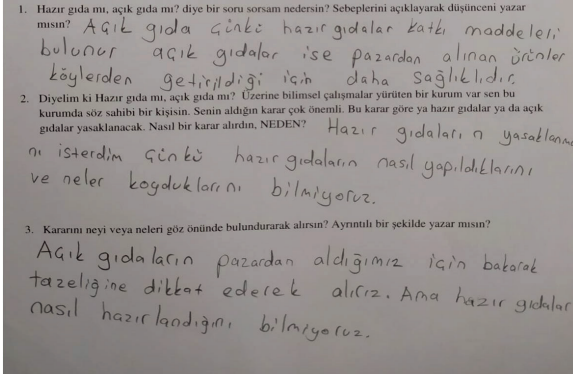 1. Hazır gıda mı, açık gıda mı? diye bir soru sorsam nedersin? Sebeplerini açıklayarak düşünceni yazar
mısın? Açık gıda Çünkü hazır gıdalar katkı maddeleri
bulunur açık gıdalar ise pazardan alınan ürünler
köylerden getirildiği için daha sağlıklıdır.
2. Diyelim ki Hazır gıda mı, açık gıda mı? Üzerine bilimsel çalışmalar yürüten bir kurum var sen bu
kurumda söz sahibi bir kişisin. Senin aldığın karar çok önemli. Bu karar göre ya hazır gıdalar ya da açık
gıdalar yasaklanacak. Nasıl bir karar alırdın, NEDEN? Hazır gıdaların yasaklanma
nı isterdim Çünkü hazır gıdaların nasıl yapıldıklarını
ve neler koyduklarını bilmiyoruz.
3. Kararını neyi veya neleri göz önünde bulundurarak alırsın? Ayrıntılı bir şekilde yazar mısın?
Açık gıdaların pazardan aldığımız için bakarak
tazeliğine dikkat ederek alırız. Ama hazır gıdalar
nasıl hazırlandığını bilmiyoruz.